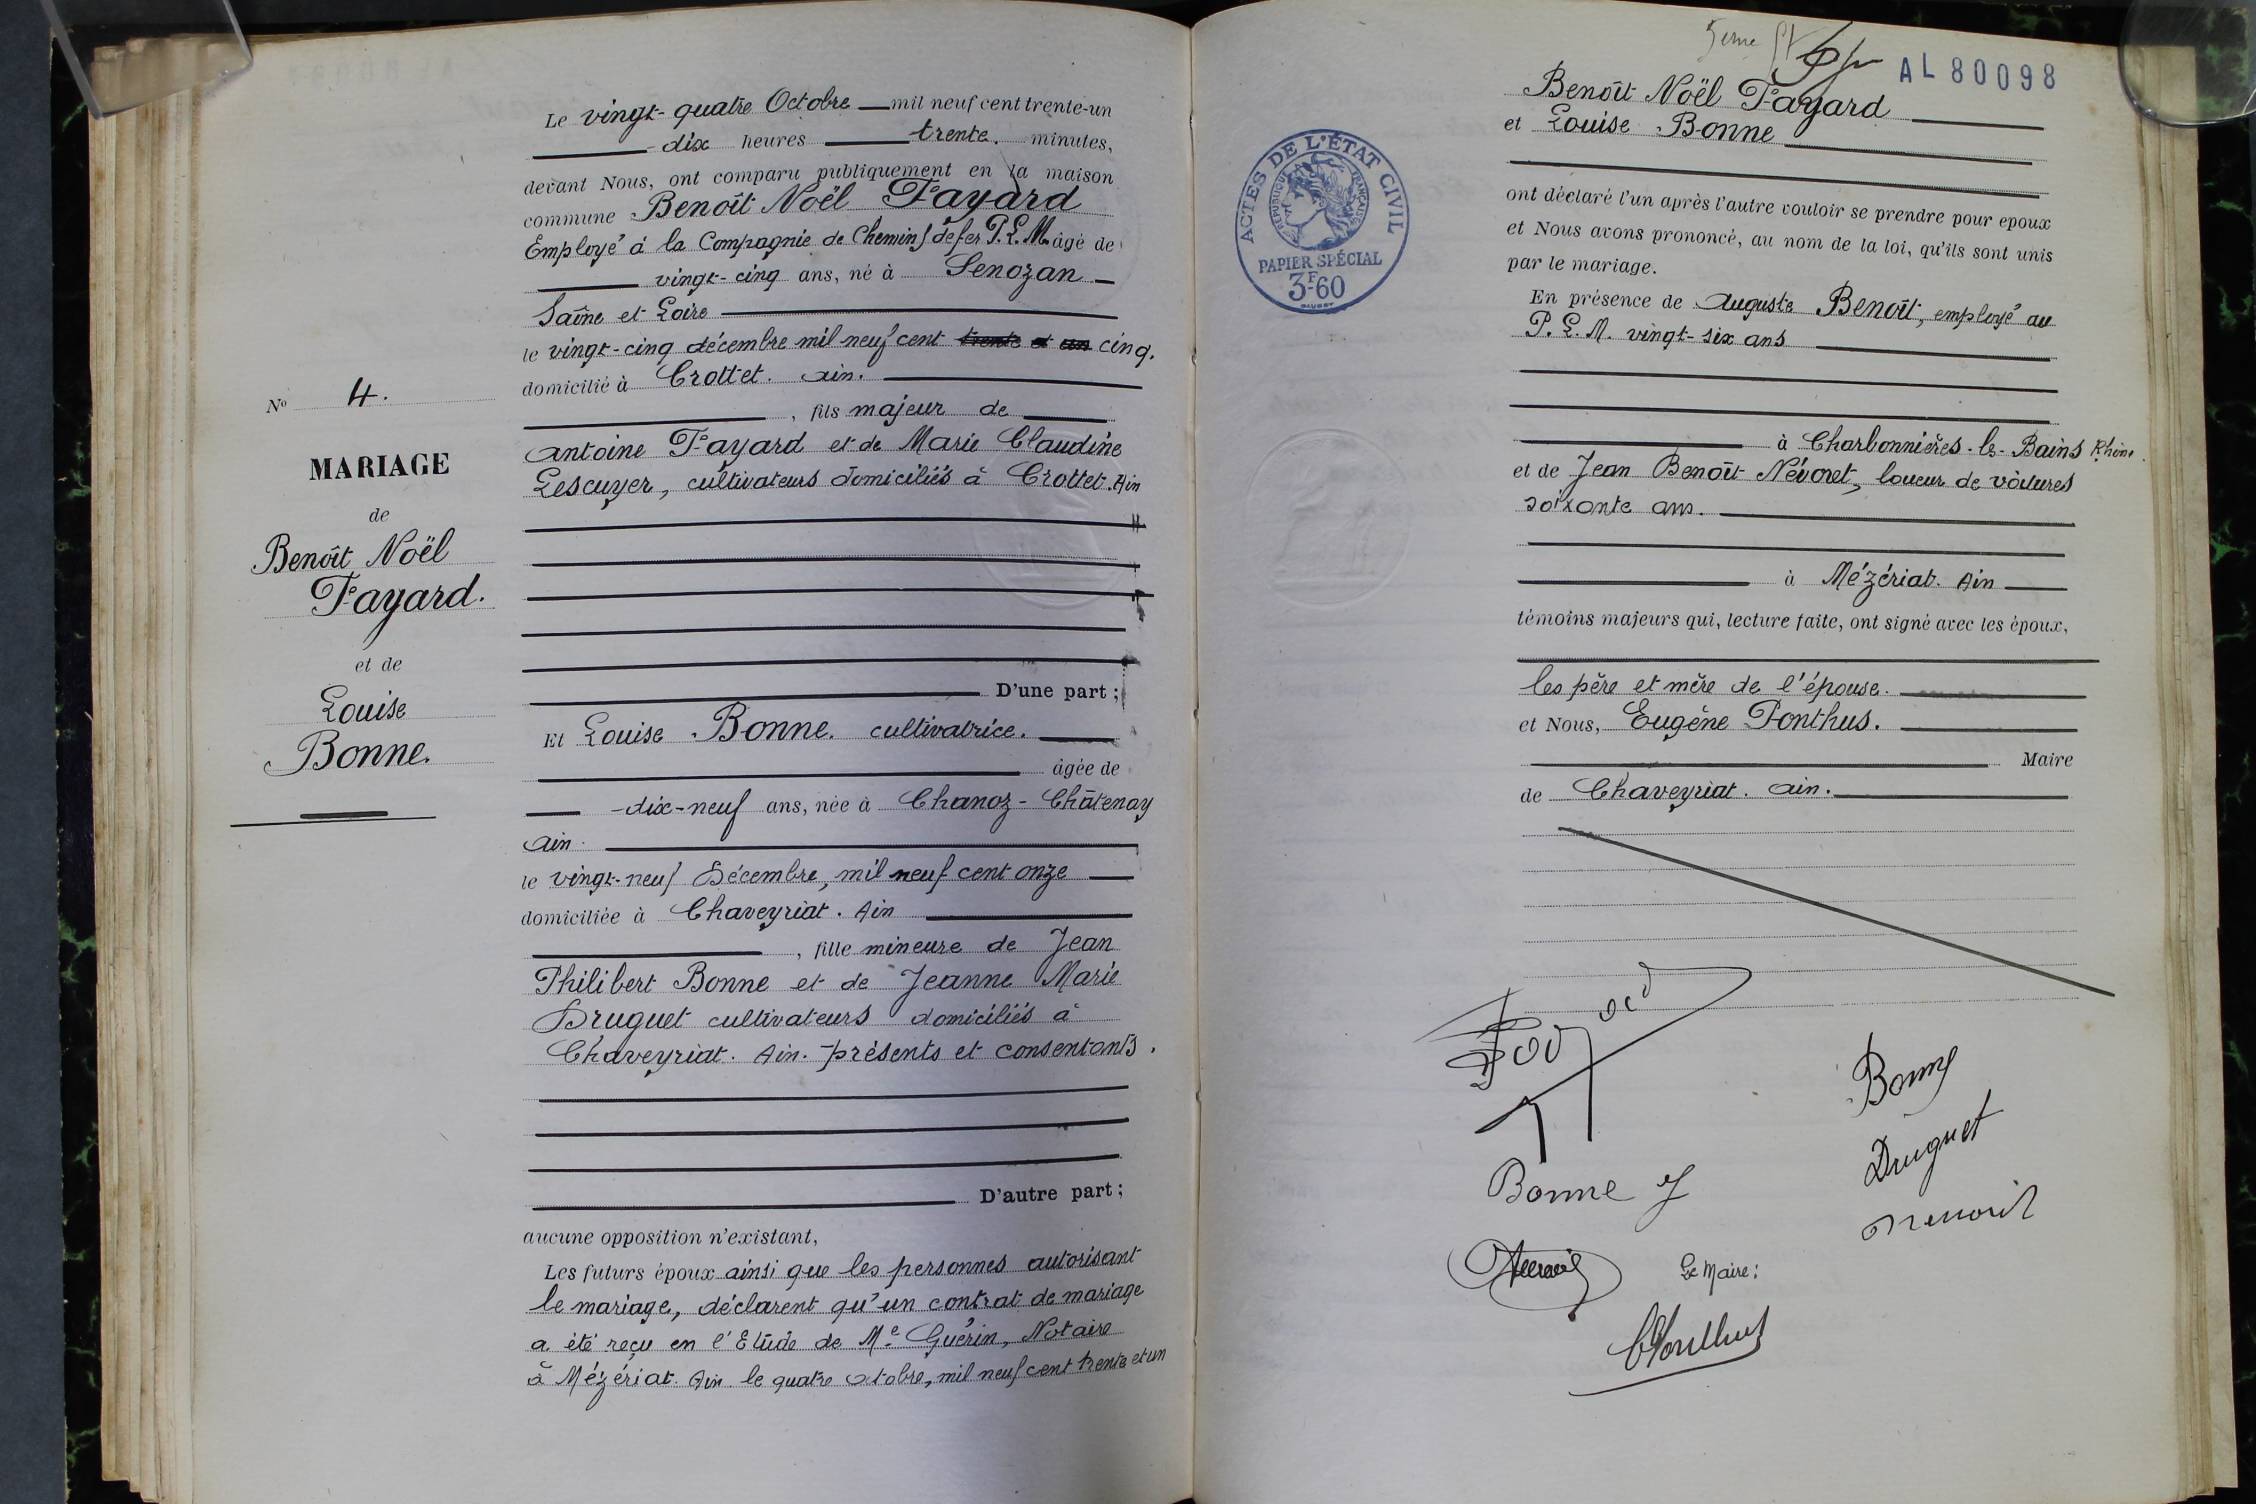 Le vingt-quatre Octobre mil neuf cent trente-un
dix heures trente. minutes,
devant Nous, ont comparu publiquement en la maison
commune Benoît Noël Fayard
Employé à la Compagnie de Chemins de fer P.L.M. âgé de
vingt-cinq ans, né à Senozan
Saône et Loire
le vingt-cinq décembre mil neuf cent trente et un cinq.
domicilié à Crottet. Ain.
, fils majeur de
Antoine Fayard et de Marie Claudine
Lescuyer, cultivateurs domiciliés à Crottet. Ain
D'une part ;
Et Louise Bonne. cultivatrice.
âgée de
dix-neuf ans, née à Chanoz-Châtenay
Ain.
le vingt-neuf Décembre, mil neuf cent onze
domiciliée à Chaveyriat. Ain
, fille mineure de Jean
Philibert Bonne et de Jeanne Marie
Druguet cultivateurs domiciliés à
Chaveyriat. Ain. présents et consentants.
D'autre part ;
aucune opposition n'existant,
Les futurs époux ainsi que les personnes autorisant
le mariage, déclarent qu'un contrat de mariage
a été reçu en l'Etude de Me Guérin, Notaire
à Mézériat. Ain. le quatre octobre, mil neuf cent trente et un
No 4.
MARIAGE
de
Benoît Noël
Fayard.
et de
Louise
Bonne.
5eme
AL 80098
ACTES DE L'ÉTAT CIVIL
RÉPUBLIQUE FRANÇAISE
PAPIER SPÉCIAL
3F60
Benoît Noël Fayard
et Louise Bonne
ont déclaré l'un après l'autre vouloir se prendre pour époux
et Nous avons prononcé, au nom de la loi, qu'ils sont unis
par le mariage.
En présence de Auguste Benoît, employé au
P.L.M. vingt-six ans
à Charbonnières-les-Bains Rhône.
et de Jean Benoît Névoret, loueur de voitures
soixante ans.
à Mézériat. Ain
témoins majeurs qui, lecture faite, ont signé avec les époux,
les père et mère de l'épouse.
et Nous, Eugène Ponthus.
Maire
de Chaveyriat. Ain.
Fayard
Bonne
Druguet
Bonne J
Le Maire :